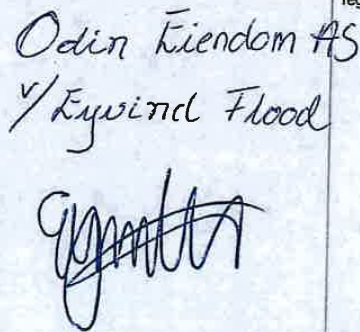 Odin Eiendom AS
v/ Eyvind Flood